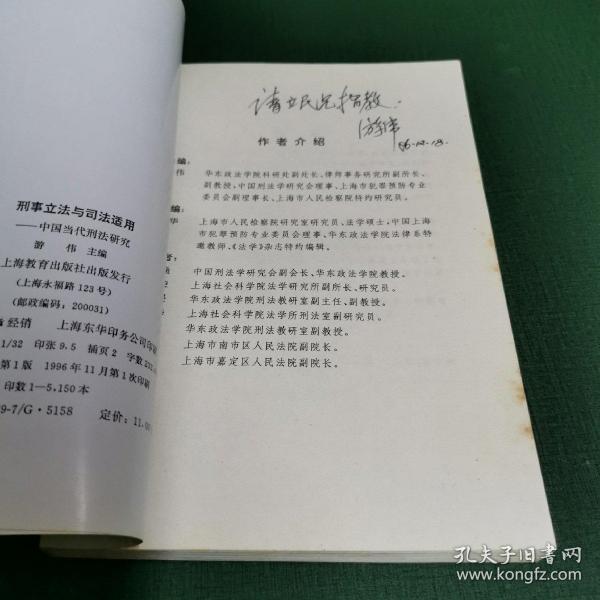 刑事立法与司法适用
——中国当代刑法研究
游 伟 主编
上海教育出版社出版发行
(上海永福路123号)
(邮政编码:200031)
经销 上海东华印务公司印刷
1/32 印张9.5 插页2 字数
第1版 1996年11月第1次印刷
印数1—5,150本
9-7/G·5158 定价:11.00
请立民兄指教.
游伟
96.12.18.
作者介绍
编:
伟 华东政法学院科研处副处长、律师事务研究所副所长、
副教授,中国刑法学研究会理事、上海市犯罪预防专业
委员会副理事长、上海市人民检察院特约研究员。
编:
华 上海市人民检察院研究室研究员、法学硕士,中国上海
市犯罪预防专业委员会理事、华东政法学院法律系特
邀教师、《法学》杂志特约编辑。
者:
中国刑法学研究会副会长、华东政法学院教授。
上海社会科学院法学研究所副所长、研究员。
华东政法学院刑法教研室副主任、副教授。
上海社会科学院法学所刑法室副研究员。
华东政法学院刑法教研室副教授。
上海市南市区人民法院副院长。
上海市嘉定区人民法院副院长。
孔夫子旧书网
www.kongfz.com